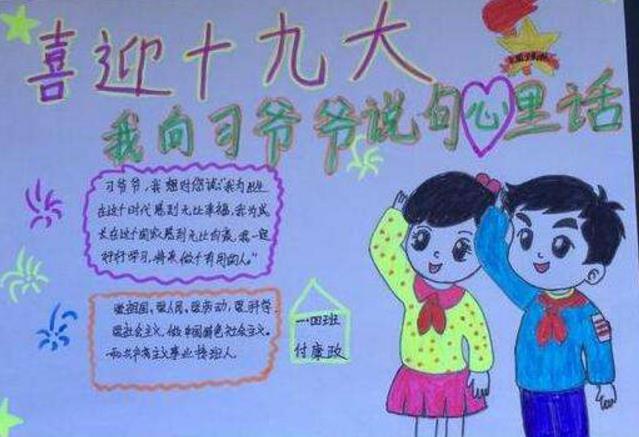 喜迎十九大
我向习爷爷说句心里话
习爷爷,我想对您说:“我为出生
在这个时代感到无比幸福,我为成
长在这个国家感到无比自豪,我一定
好好学习,将来做个有用的人。”
爱祖国,爱人民,爱劳动,爱科学,
爱社会主义,做中国特色社会主义
和共产主义事业接班人
一.四班
付康政